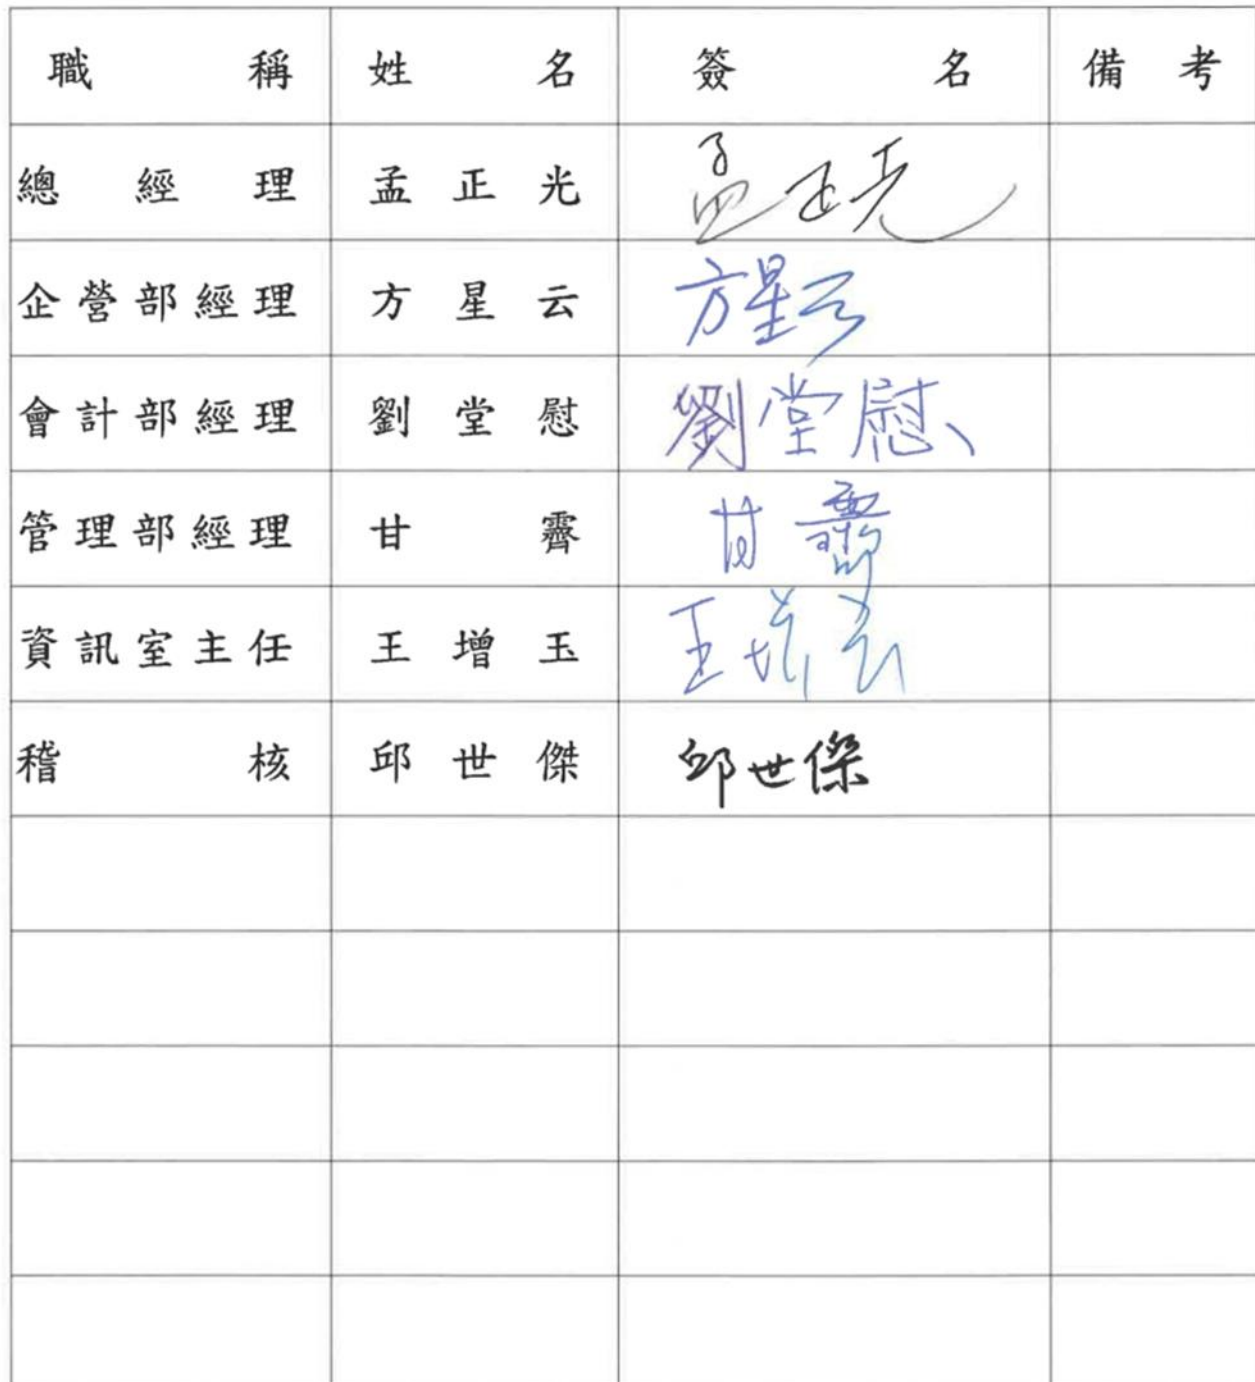 職稱 姓名 簽名 備考
總經理 孟正光 孟正光
企營部經理 方星云 方星云
會計部經理 劉堂慰 劉堂慰
管理部經理 甘霽 甘霽
資訊室主任 王增玉 王增玉
稽核 邱世傑 邱世傑